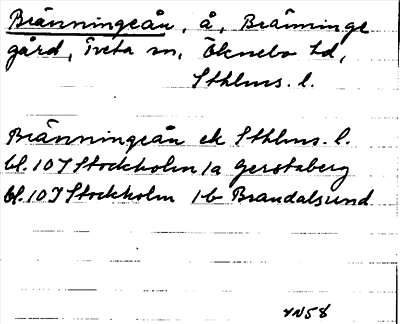 Bränningeån, å, Bränninge
gård, Tveta sn, Öknebo hd,
Sthlms. l.
Bränningeån ek Sthlms. l.
bl. 10 I Stockholm 1a Gerstaberg
bl. 10 I Stockholm 1b Brandalsund
VN58